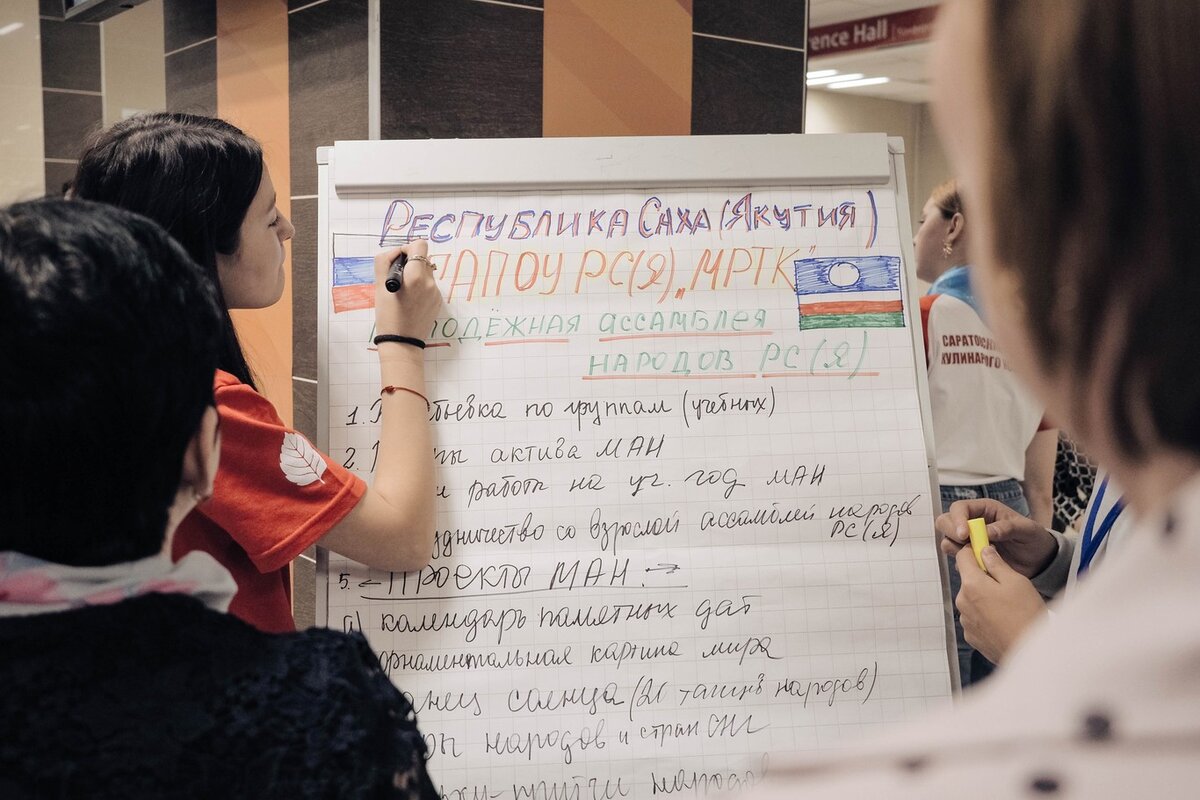 ence Hall
РЕСПУБЛИКА САХА (ЯКУТИЯ)
ГАПОУ РС(Я) „МРТК"
МОЛОДЁЖНАЯ АССАМБЛЕЯ
НАРОДОВ РС(Я)
1. бивка по группам (учебных)
2. ры актива МАН
н работы на уч. год МАН
удничество со взрослой ассамблеей народов
РС(Я)
5. ← ПРОЕКТЫ МАН. →
а) календарь памятных дат
орнаментальная картина мира
танец солнца (21 народов)
ры народов и стран СНГ
-притчи народов
САРАТОВС
КУЛИНАРНОГО